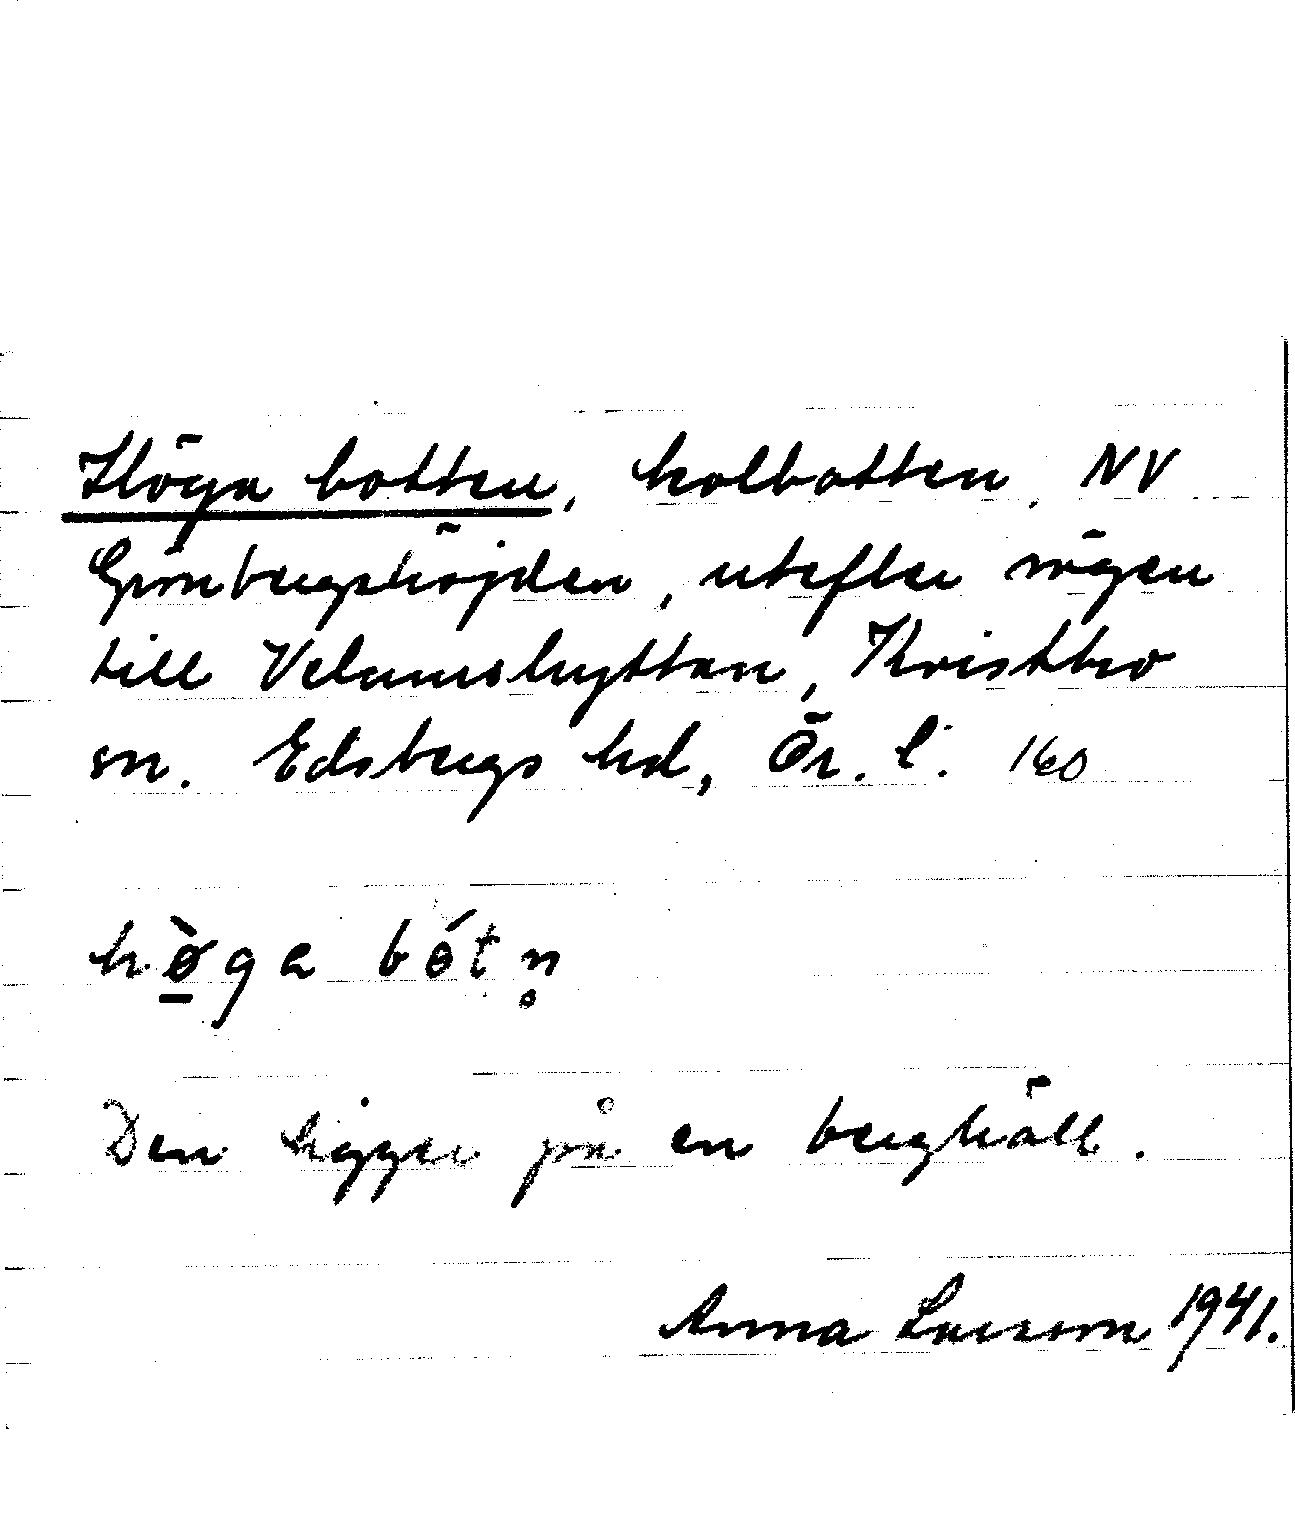 Höga botten, kolbotten, NV
Grönbergshöjden, utefter vägen
till Velamshyttan, Kvistbro
sn. Edsbergs hd, Ör. l. 160
hø̀ga bótn̥
Den ligger på en berghäll.
Anna Larsson 1941.